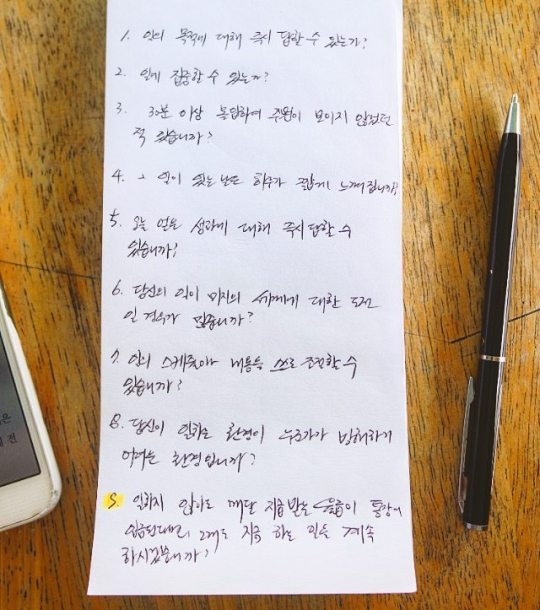 1. 일의 목적에 대해 즉시 답할 수 있는가?
2. 일에 집중할 수 있는가?
3. 30분 이상 몰입하여 주변이 보이지 않았던
적 있습니까?
4. 그 일이 있는 날은 하루가 짧게 느껴집니까?
5. 오늘 얻은 성과에 대해 즉시 답할 수
있습니까?
6. 당신의 일이 미지의 세계에 대한 도전
일 경우가 많습니까?
7. 일의 스케쥴이나 내용을 스스로 조절할 수
있습니까?
8. 당신이 일하는 환경이 누군가가 방해하기
어려운 환경입니까?
9. 일하지 않아도 매달 지금 받는 월급이 통장에
입금된대도 그래도 지금 하는 일을 계속
하시겠습니까?